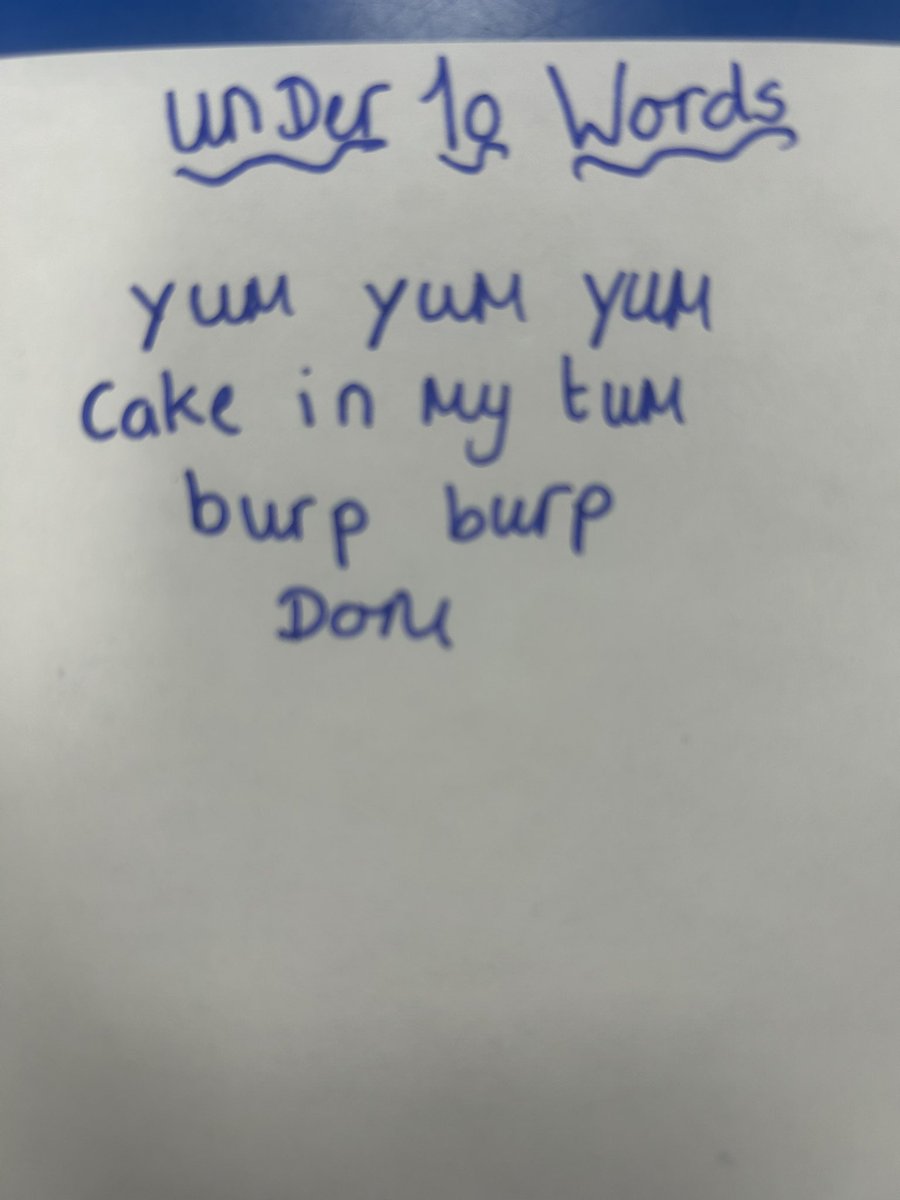 UnDer 10 Words
yum yum yum
Cake in my tum
burp burp
Done